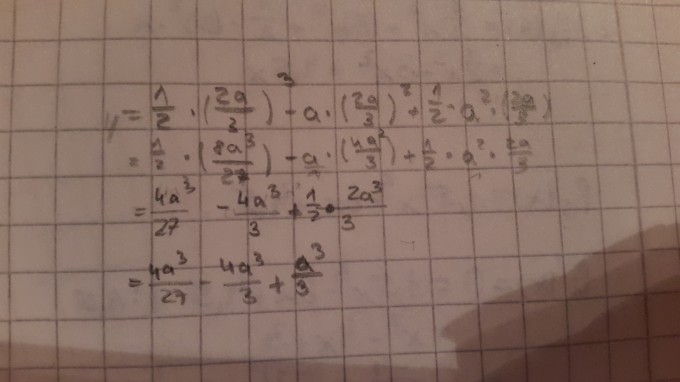 = 1/2 · (2a/3)^3 - a · (2a/3)^2 + 1/2 · a^2 · (2a/3)
= 1/2 · (8a^3/27) - a · (4a^2/3) + 1/2 · a^2 · 2a/3
= 4a^3/27 - 4a^3/3 + 1/2 · 2a^3/3
= 4a^3/27 - 4a^3/3 + a^3/3